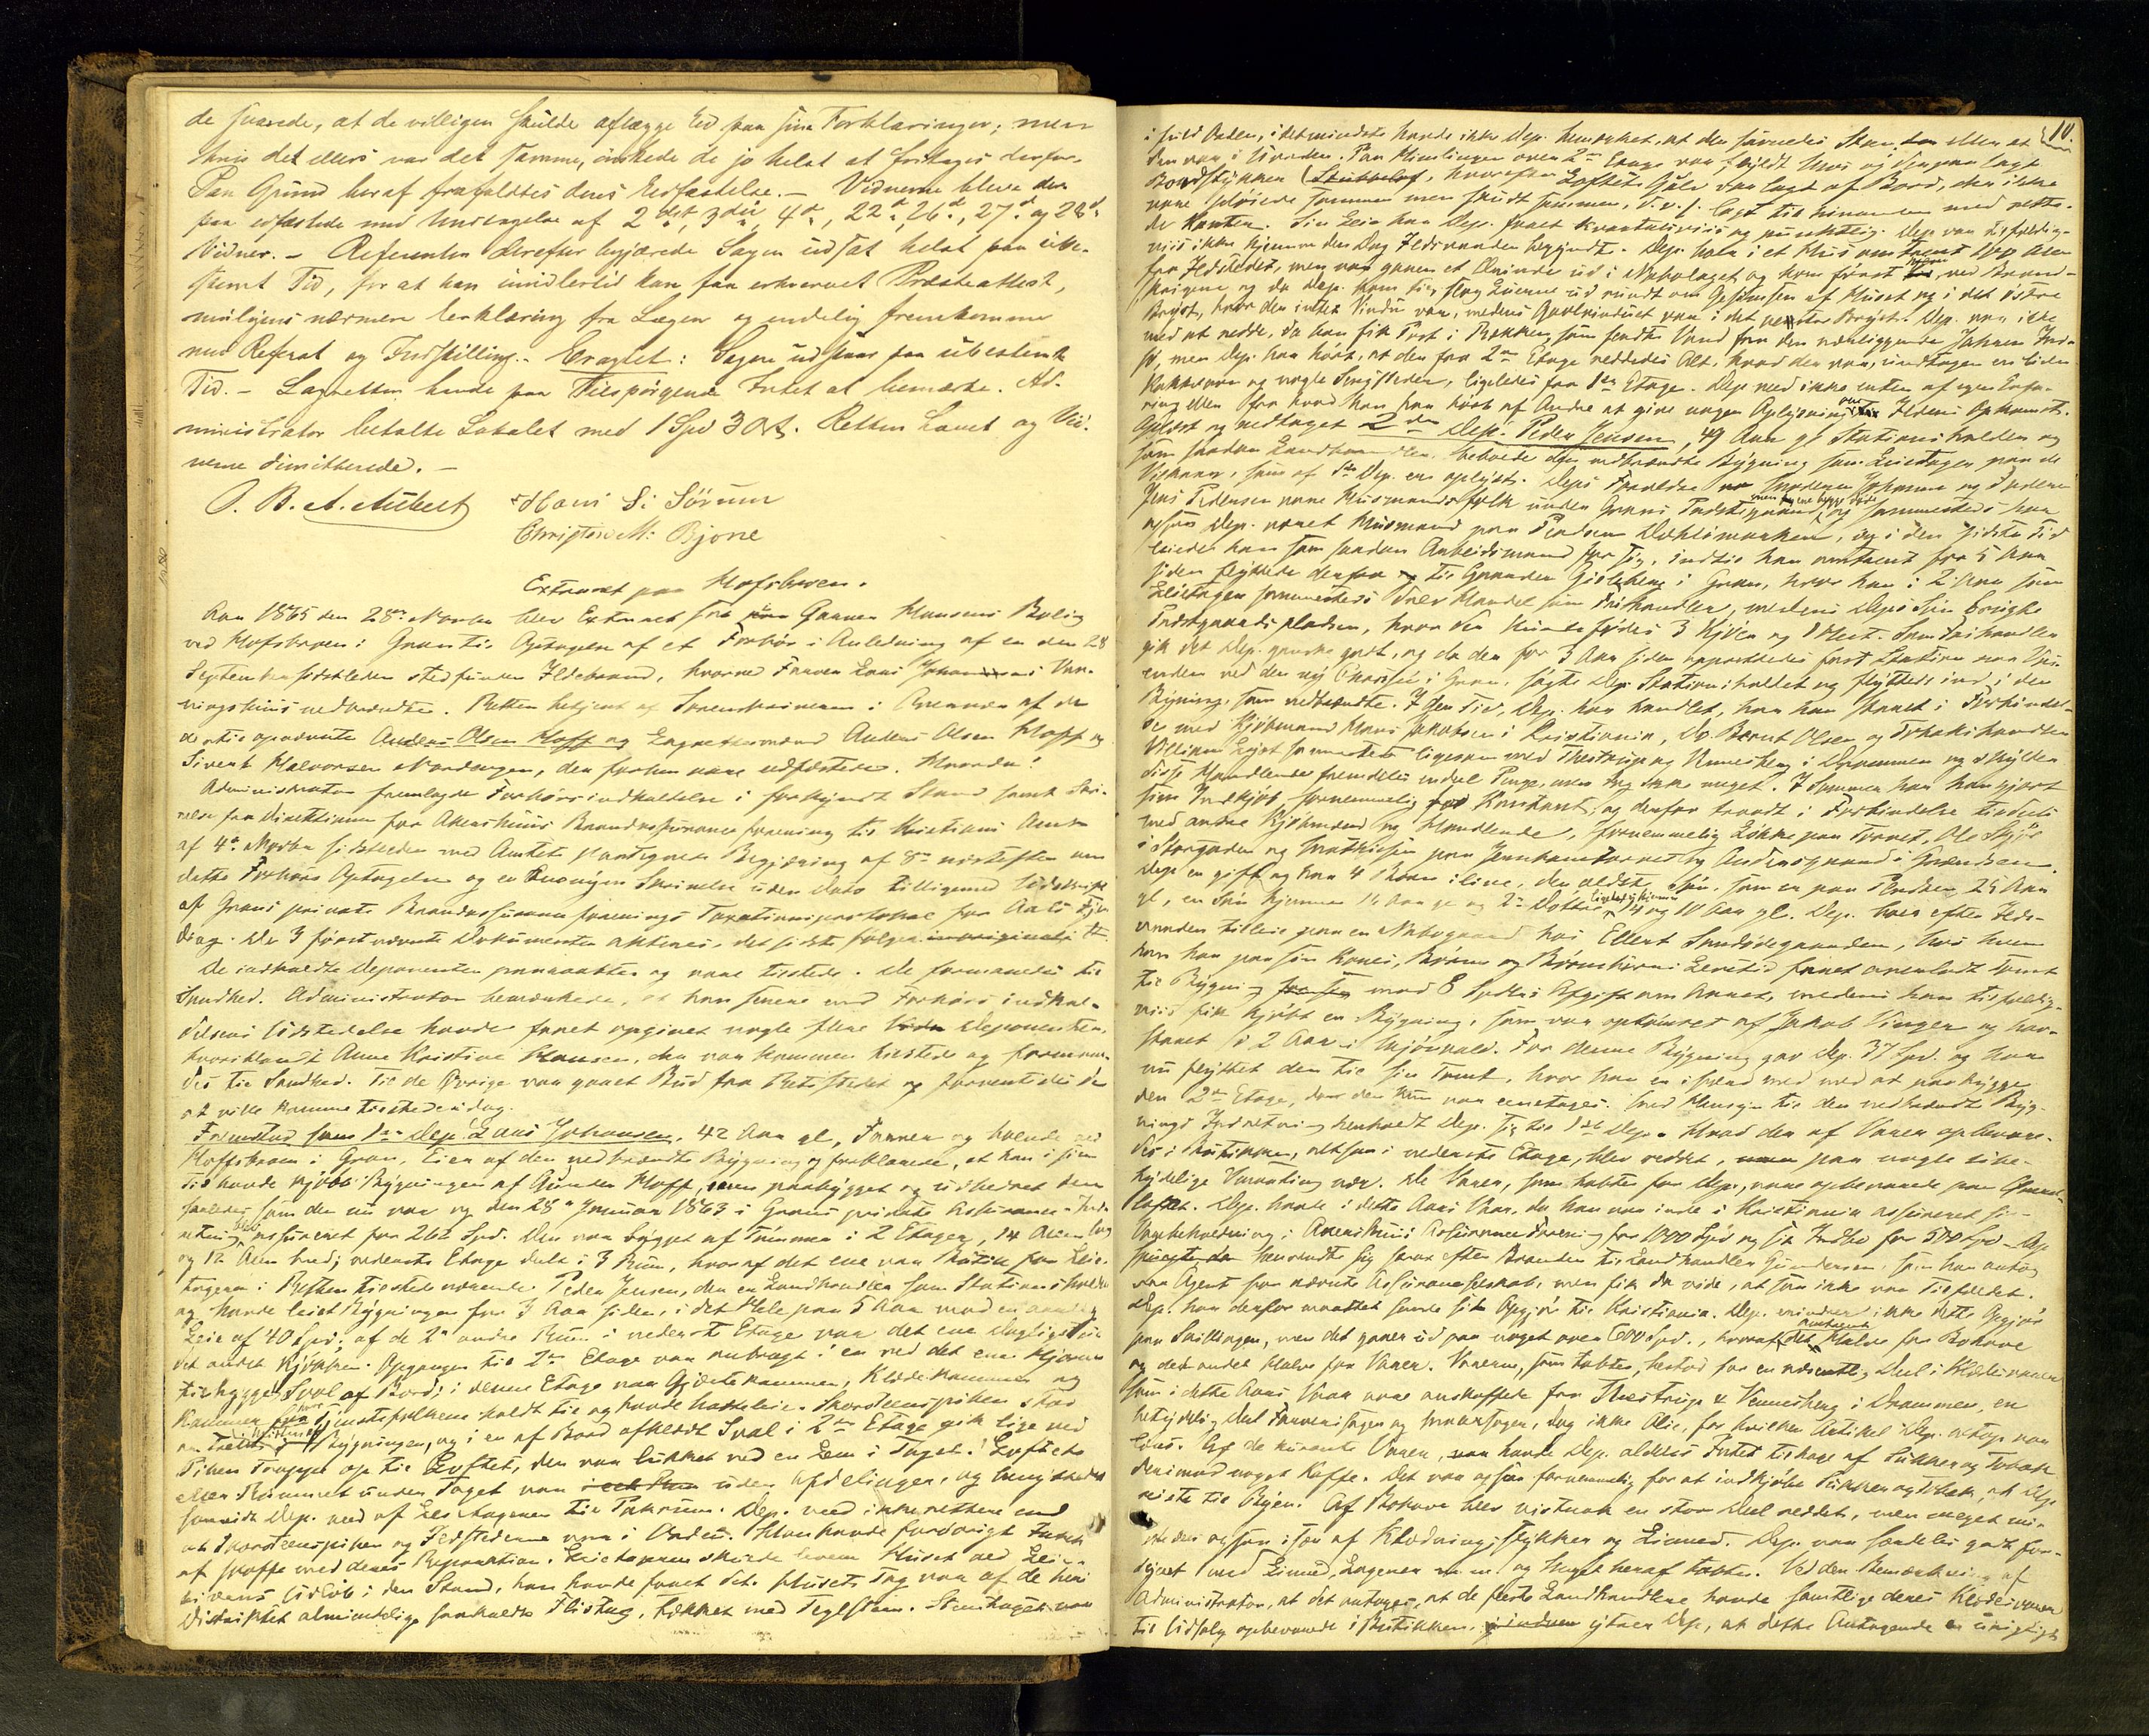 de svarede, at de villigen skulde aflægge Ed paa sine Forklaringer; men
hvis det ellers var det samme, ønskede de jo helst at fritages derfor.
Paa Grund heraf frafaldtes deres Edfæstelse. — Vidnerne bleve der
paa edfæstede med Undtagelse af 2det, 3die, 4de, 22de, 26de, 27de og 28de
Vidner. — Referenten derefter begjærede Sagen udsat helst paa ube-
stemt Tid, for at han imidlertid kan faa erhvervet Præsteattest,
muligens nærmere Erklæring fra Lægen og endelig fremkomme
med Referat og Indstilling. Eragtet: Sagen udstaar paa ubestemt
Tid. — Lagretten havde paa Tilspørgende Intet at bemærke. Ad-
ministrator betalte Lokalet med 1 Spd 3 Ort. Retten hævet og Vid-
nerne dimitterede. —
O. B. A. Aubert Hans S: Sörum
Christen M: Bjone
Extraret paa Hofsbroen.
Aar 1865 den 28de Novbr blev Extraret sat paa Garver Hansens Bolig
ved Hofsbroen i Gran til Optagelse af et Forhør i Anledning af en den 28
September sidstleden stedfunden Ildebrand, hvorved Farver Lars Johansens Vaa-
ningshuus nedbrændte. Retten betjent af Sorenskriveren i Overvær af de
dertil opnævnte Anders Olsen Hoff og Lagrettesmænd Anders Olsen Hoff og
Sivert Halvorsen Nordengen, der forhen vare edfæstede. Hvorda!
Administrator fremlagde Forhørsindkaldelse i forkyndt Stand samt Skri-
velse fra Direktionen for Akershuus Brandassuranceforening til Kristians Amt
af 4de Novbr sidstleden med Amtets paategnede Begjæring af 8de næstefter om
dette Forhørs Optagelse og en Skrivelse uden Dato tilligemed Udskrift
af Grans private Brandassuranceforenings Taxationsprotokol
De 3 førstnævnte Dokumenter akteres, det sidste følger
De indkaldte Deponenter paaraabtes og vare tilstede. De formanedes til
Sandhed. Administrator bemærkede, at han senere end Forhørsindkal-
delsens Udstedelse havde faaet opgivet nogle flere Deponenter,
hvoriblandt Anne Kristine Hansen, der var kommen tilstede og forman-
des til Sandhed. Til de Øvrige var gaaet Bud fra Retsstedet og forventedes de
at ville komme tilstede idag.
Fremstod som 1ste Dep: Lars Johansen, 42 Aar gl., Farver og boende ved
Hoffsbroen i Gran, Eier af den nedbrændte Bygning og forklarede, at han i sin
Tid havde kjøbt Bygningen af Gunder Hoff, paabygget og udbedret den
saaledes som den nu var og den 28de Januar 1863 i Grans private Assurance-Ind-
retning assureret for 262 Spd. Den var bygget af Tømmer i 2 Etager, 14 Alen lang
og 12 Alen bred; nederste Etage delt i 3 Rum, hvoraf det ene var Butik for Leie-
tageren i Retten tilstedeværende Peder Jensen, der er Landhandler samt Stationsholder
og havde leiet Bygningen for 3 Aar siden, i det Hele paa 5 Aar mod en aarlig
Leie af 40 Spd; af de 2de andre Rum i nederste Etage var det ene Dagligstue
det andet Kjøkken. Opgangen til 2den Etage var anbragt i en ved det ene Hjørne
tilbygget Sval af Bord; i denne Etage var Gjæstekammer, Klædekammer og
Kammer hvor Tjenestefolkene holdt til og havde Natteleie. Skorsteenspiben stod
i Midten af Bygningen, og i en af Bord afklædt Sval i 2den Etage gik lige ved
Piben Trappe op til Loftet, der var lukket ved en Lem i Taget. Loftet
eller Rummet under Taget var uden Afdelinger, og benyttedes
saavidt Dep. veed af Leietageren til Pakrum. Dep. veed ikke rettere end
at Skorsteenspiben og Ildstederne var i Orden. Han havde forøvrigt Intet
at skaffe med deres Reparation. Leietageren skulde levere Huset ved Lei-
tidens Udløb i den Stand, han havde faaet det. Husets Tag var af de her i
Distriktet almindelige saakaldte Flistag, tækket med Teglsteen.
10.
i fuld Orden, i det mindste havde ikke Dep. bemærket, at der savnedes Steen eller at
den var i Uorden. Paa Himlingen over 2den Etage var fyldt Muur og derpaa lagt
Bordstykker (Stubbeloft, hvorefter Loftets Gulv var lagt af Bord, der ikke
vare pløiede sammen men skudt sammen, d.v.s. lagt til hinanden med rette
de Kanter. Sin Leie har Dep. faaet kvartaliter og punktlig. Dep. var tilfældig-
viis ikke hjemme den Dag Ildsvaaden begyndte. Dep. boer i et Huus omtrent 100 Alen
fra Ildstedet, men var gaaen et Ærinde ud i Nabolaget og kom først hjem ved Brand-
skrigene og da Dep. kom til, slog Luerne ud rundt om Gesimsen af Huset og i det østre
Bryst, hvor der intet Vindu var, medens Gavlvinduet var i det vestre Bryst. Dep. var ikke
med at redde, da han fik Post i Rækken, som sendte Vand fra den nærliggende
sø, men Dep. har hørt, at der fra 2den Etage reddedes Alt, hvad der var, undtagen en liden
Kakkelovn og nogle Sengsteder, ligeledes fra 1ste Etage. Dep. veed ikke enten af egen Erfa-
ring eller fra hvad han har hørt af Andre at give nogen Oplysning om Ildens Opkomst.
Oplæst og vedtaget 2den Dep: Peder Jensen, 49 Aar gl Stationsholder og
som saadan Landhandler, beboede den nedbrændte Bygning som Leietager paa de
Vilkaar, som af 1ste Dep. er oplyst. Deps Forældre Moderen Johanne og Faderen
Jens Pedersen vare Husmandsfolk under Grans Præstegaard, og sammesteds har
ogsaa Dep. været Husmand paa Pladsen, og i den sidste Tid
levede han som saadan Arbeidsmand for sig, indtil han omtrent for 5 Aar
siden flyttede derfra til Gaarden i Gran, hvor han i 2 Aar som
Leietager sammesteds drev Handel som Frihandler, medens Deps Søn brugte
Præstgaardspladsen, hvor der kunde fødes 3 Kjøer og 1 Hest. Som Frihandler
gik det Dep. ganske godt, og da der for 3 Aar siden oprettedes fast Station
enden ved den ny Chaussé i Gran, søgte Dep. Stationsholdet og flyttede ind i den
Bygning, som nedbrændte. I den Tid, Dep. har handlet, har han staaet i Forbindel-
se med Kjøbmand Hans Jacobsen i Kristiania, Do. Bernt Olsen og Tobakshandler
William Lejst sammesteds ligesom med Thestrup og Vennesberg i Drammen og skylder
disse Handlende fremdeles endeel Penge, men dog ikke noget. I Sommer har han gjort
sine Indkjøb fornemmelig kontant, og derfor traadt i Forbindelse tildeels
med andre Kjøbmænd og Handlende, fornemmelig Løkke paa Torvet, Ole
i Storgaden og Mathiesen paa Jernbanetorvet og Andersgaard i Grændsen.
Dep. er gift og har 4 Børn ilive, den ældste Søn, som er paa Pladsen 25 Aar
gl, en Søn hjemme 16 Aar gl og 2de Døttre ligeledes hjemme 14 og 10 Aar gl. Dep. boer efter Ilds-
vaaden tilleie paa en Nabogaard hos Ellert Sandødegaarden, hos hvem
han paa sin Kones, Børns og Børnebørns Levetid faaet overladt Tomt
til Bygning mod 8 Spdlrs Afgift om Aaret, medens han tilfældig-
viis fik kjøbt en Bygning, som var optømret af Jakob Vinger og hav-
staaet i 2 Aar i For denne Bygning gav Dep. 37 Spd. og har
nu flyttet den til sin Tomt, hvor han er ifærd med at paabygge
den 2den Etage, da den kun var eenetages. Med Hensyn til den nedbrændte Byg-
nings Indretning henholdt Dep. sig til 1ste Dep. Hvad der af Varer opbevare-
des i Butikken, altsaa i nederste Etage, blev reddet, paa nogle ube-
tydelige Varerting nær. De Varer, som tabtes for Dep., vare opbevarede paa Øverst-
loftet. Dep. havde i dette Aars Vaar, da han var inde i Kristiania assureret sin
Varebeholdning i Akershuus Assuranceforening for 1000 Spd og sit Indbo for 500 Spd. Dep.
henvendte sig strax efter Branden til Landhandler Gundersen, som han antog
var Agent for nævnte Assuranceselskab, men fik da vide, at saa ikke var Tilfældet.
Dep. har derfor maattet sende sit Opgjør til Kristiania. Dep. mindes ikke dette Opgjør
paa Skillingen, men det gaaer ud paa noget over 600 Spd., hvoraf omtrent det Halve for Bohave
og det andet Halve for Varer. Varerne, som tabtes, bestod for en væsentlig Deel i Klædevarer
som i dette Aars Vaar vare anskaffede fra Thestrup & Vennesberg i Drammen, en
betydelig Deel Farvevarer, dog ikke Olie, for hvilken Artikel Dep. netop var
løus. Af de kurante Varer, havde Dep. aldeles Intet tilbage af Sukker og Tobak
derimod noget Kaffe. Det var ogsaa fornemmelig for at indkjøbe Sukker og Tobak, at Dep.
reiste til Byen. Af Bohave blev vistnok en stor Deel reddet, men meget mi-
stedes ogsaa især af Klædningsstykker og Linned. Dep. var særdeles godt for-
synet med Linned, Lagener og Meget heraf tabtes. Ved den Bemærkning af
Administrator, at det antages, at de fleste Landhandlere havde samtlige deres Klædevarer
til Udsalg opbevarede i Butikken, ytrer Dep., at dette Antagende er urigtigt